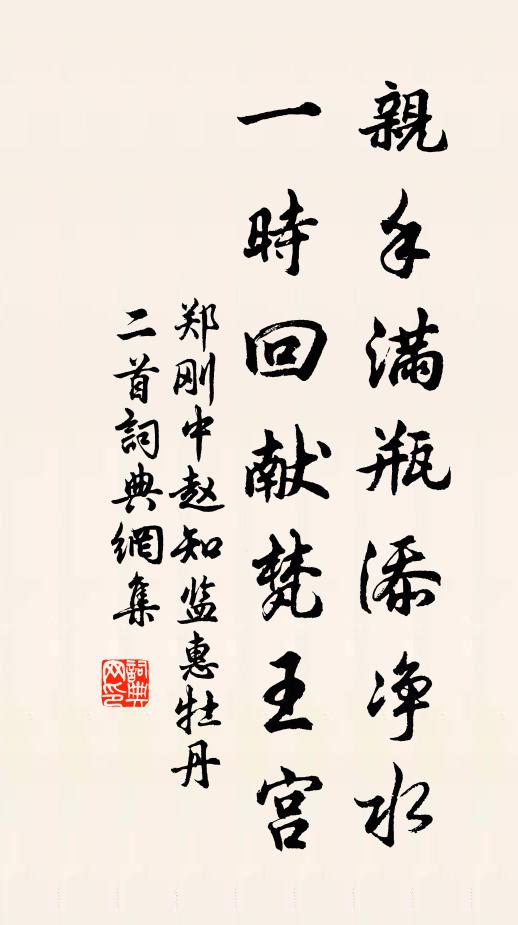 親手滿瓶添净水
一時回献梵王宫
郑刚中赵知监惠牡丹
二首詞典網集
詞典网印